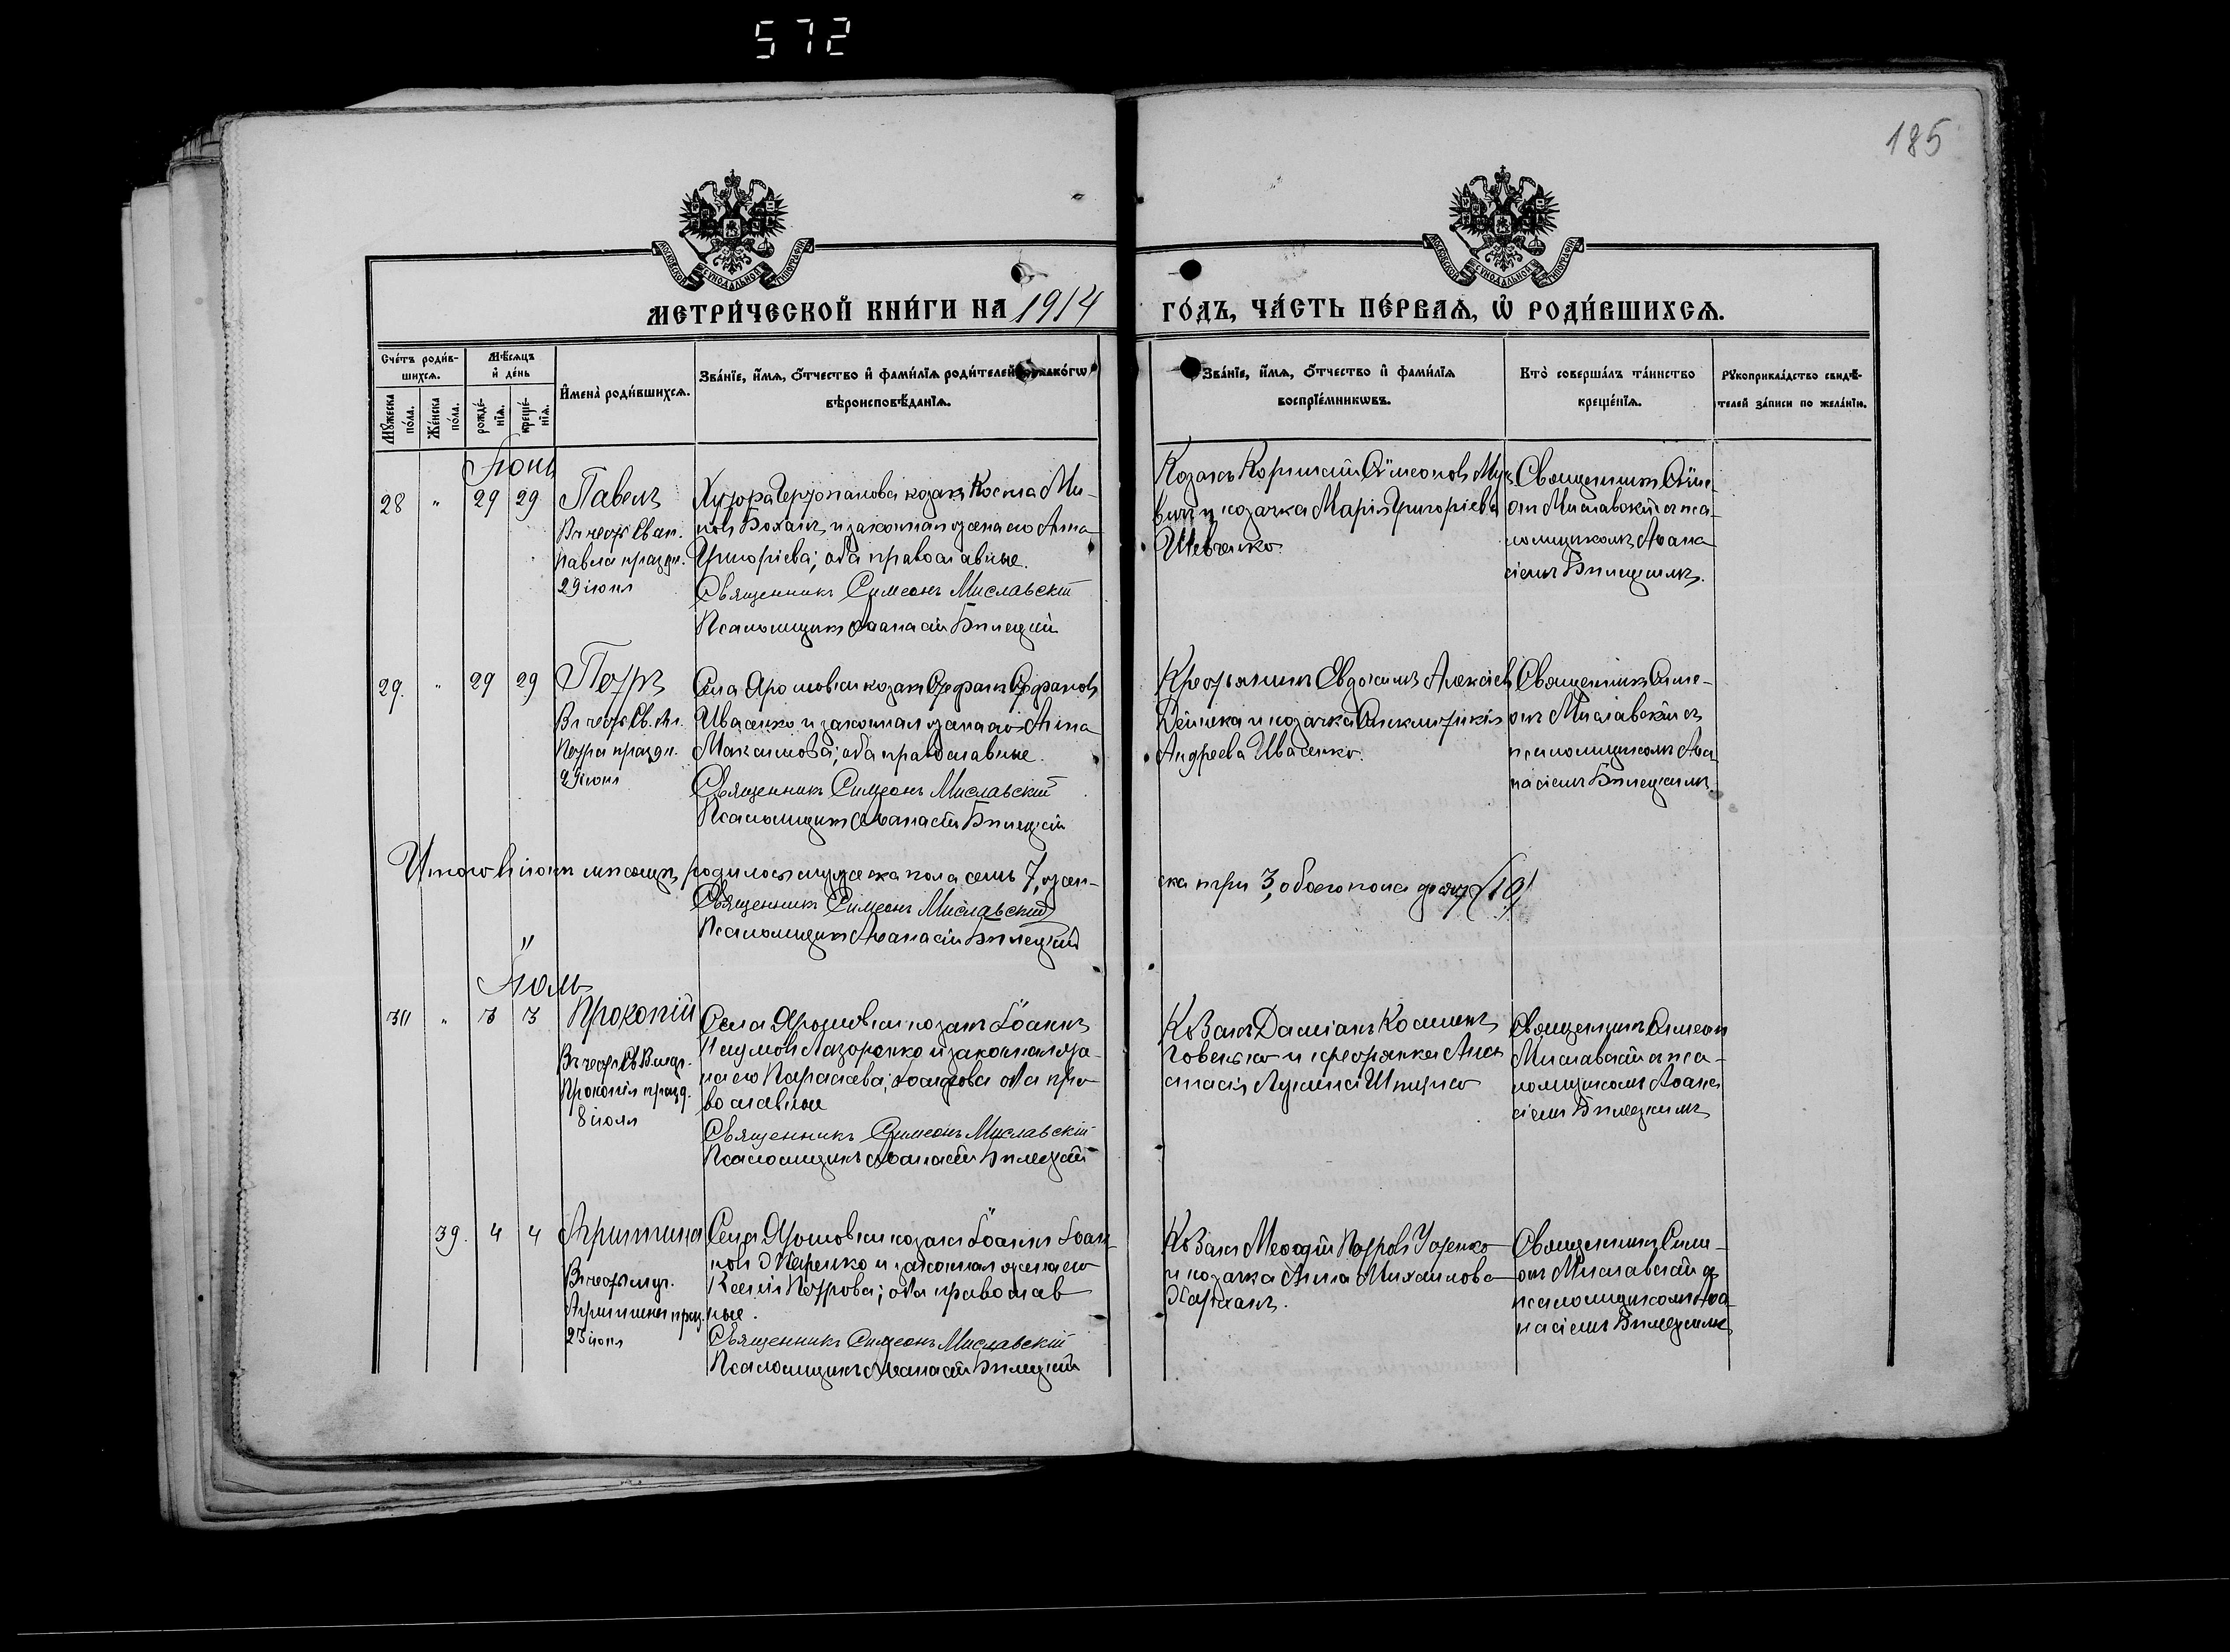 572
185
МОСКОВСКОЙ СѴНОДАЛЬНОЙ ТИПОГРАФІИ
МОСКОВСКОЙ СѴНОДАЛЬНОЙ ТИПОГРАФІИ
МЕТРИ́ЧЕСКОЙ КНИ́ГИ НА 1914
ГО́ДЪ, ЧА́СТЬ ПЕ́РВАѦ, Ѽ РОДИ́ВШИХСѦ.
Сче́тъ роди́в-
шихсѧ.
Мѣ́сѧцъ
и҆ де́нь
Мꙋ́жеска
по́ла.
Же́нска
по́ла.
рожде́-
нїѧ.
креще́-
нїѧ.
И҆мена̀ роди́вшихсѧ.
Зва́нїе, и҆́мѧ, ѻ҆́тчество и҆ фами́лїѧ роди́телей
вѣроисповѣ́данїѧ.
Зва́нїе, и҆́мѧ, ѻ҆́тчество и҆ фами́лїѧ
воспрїе́мникѡвъ.
Кто̀ соверша́лъ та́инство
креще́нїѧ.
Рꙋкоприкла́дство свидѣ́-
телей за́писи по жела́нїю.
Іюнь
28 " 29 29 Павелъ
Въ честь Св. ап.
Павла праздн.
29 іюня
Хутора козакъ Косма Ми-
новъ Боханъ и законная жена его Анна
Григоріева; оба православные.
Священникъ Симеонъ Миславскій
Псаломщикъ Аѳанасій Билецкій
Козакъ Корнилій Сімеоновъ
и козачка Марія Григоріева
Шевченко.
Священникъ Сіме-
онъ Миславскій съ пса-
ломщикомъ Аѳана-
сіемъ Билецкимъ.
29. " 29 29 Петръ
Въ честь Св. Ап.
Петра праздн.
29 іюня
Села Ярошовки козакъ Стефанъ Стефановъ
Иваненко и законная жена его Анна
Максимова; оба православные.
Священникъ Симеонъ Миславскій
Псаломщикъ Аѳанасій Билецкій
Крестьянинъ Евдокимъ Алексіевъ
и козачка
Андреева Иваненко.
Священникъ Симе-
онъ Миславскій съ
псаломщикомъ Аѳа-
насіемъ Билецкимъ.
Итого въ іюнѣ мѣсяцѣ родилось мужеска пола семь 7, жен-
ска три 3, обоего пола десять (10)
Священникъ Симеонъ Миславскій
Псаломщикъ Аѳанасій Билецкій
"
Іюль
30 " 3 3 Прокопій
Въ честь Св. Вмуч.
Прокопія празд.
8 іюля
Села Ярошовки козакъ Іоаннъ
Наумовъ Лазоренко и законная же-
на его Параскева Іосифова оба пра-
вославные
Священникъ Симеонъ Миславскій
Псаломщикъ Аѳанасій Билецкій
Козакъ Даміанъ Косминъ
и крестьянка Ана-
стасія Лукина
Священникъ Симеонъ
Миславскій съ пса-
ломщикомъ Аѳана-
сіемъ Билецкимъ
39. 4 4 Агрипина
Въ честь муч.
Агрипины праз.
23 іюня
Села Ярошовки козакъ Іоаннъ Іоан-
новъ и законная жена его
Ксенія Петрова; оба православ-
ные.
Священникъ Симеонъ Миславскій
Псаломщикъ Аѳанасій Билецкій
Козакъ Меѳодій Петровъ
и козачка Анна Михаилова
Священникъ Симе-
онъ Миславскій съ
псаломщикомъ Аѳа-
насіемъ Билецкимъ